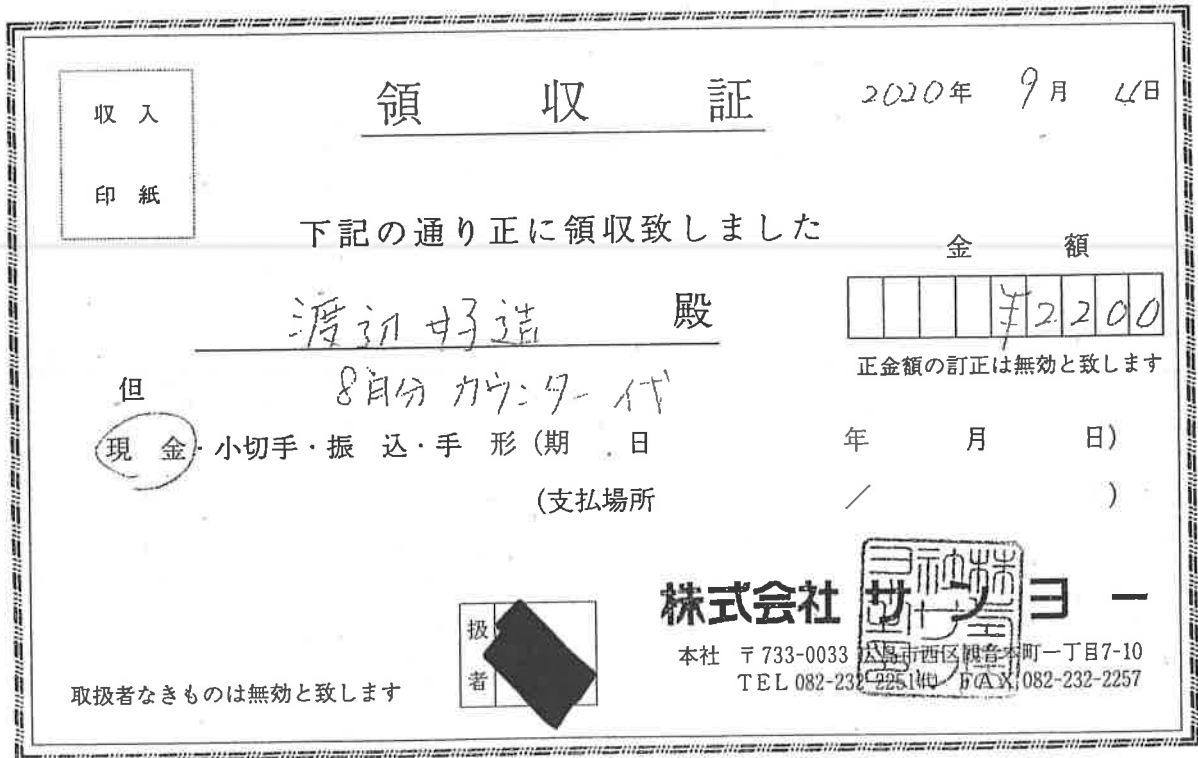 収入
印紙
領収証
2020年 9月 4日
下記の通り正に領収致しました
金額
渡辺好造 殿
¥2200
正金額の訂正は無効と致します
但 8月分 カウンター代
現金・小切手・振込・手形(期日 年 月 日)
(支払場所 / )
株式会社サンヨー
扱者
本社 〒733-0033 広島市西区観音本町一丁目7-10
TEL 082-232-2251㈹ FAX 082-232-2257
取扱者なきものは無効と致します